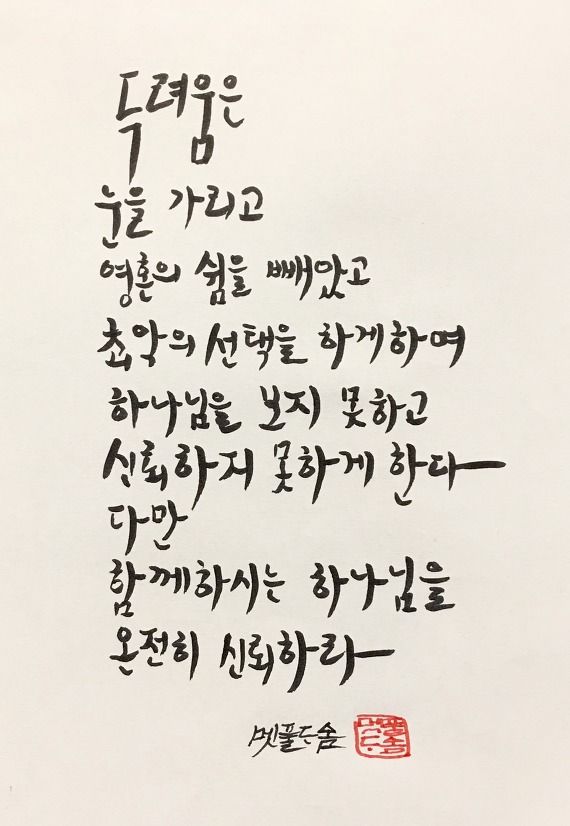 두려움은
눈을 가리고
영혼의 쉼을 빼앗고
최악의 선택을 하게하며
하나님을 보지 못하고
신뢰하지 못하게 한다
다만
함께하시는 하나님을
온전히 신뢰하라
멧풀드솜